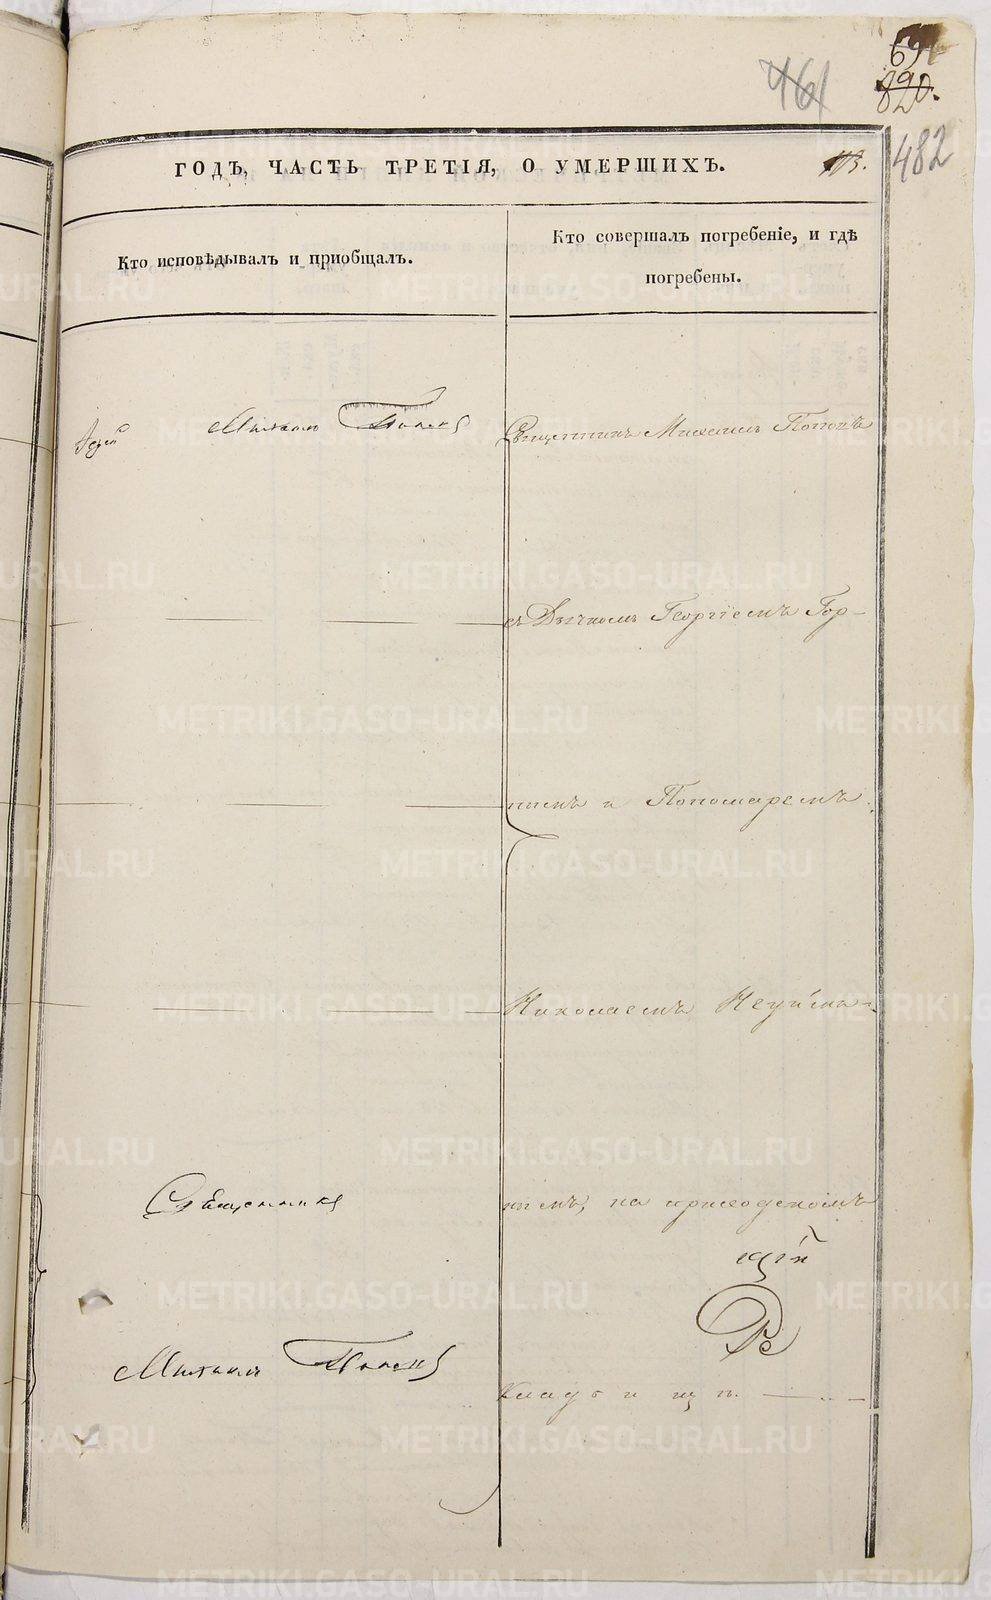 461
69
820.
482
ГОДЪ, ЧАСТЬ ТРЕТІЯ, О УМЕРШИХЪ.
113.
Кто исповѣдывалъ и пріобщалъ.
Кто совершалъ погребеніе, и гдѣ
погребены.
Михаилъ Поповъ
Священникъ Михаилъ Поповъ
съ Дьячкомъ Георгіемъ Гор-
нымъ и Пономаремъ
Николаемъ Неуйми-
нымъ, на приходскомъ
Священникъ
Михаилъ Поповъ
кладбищѣ.
METRIKI.GASO-URAL.RU